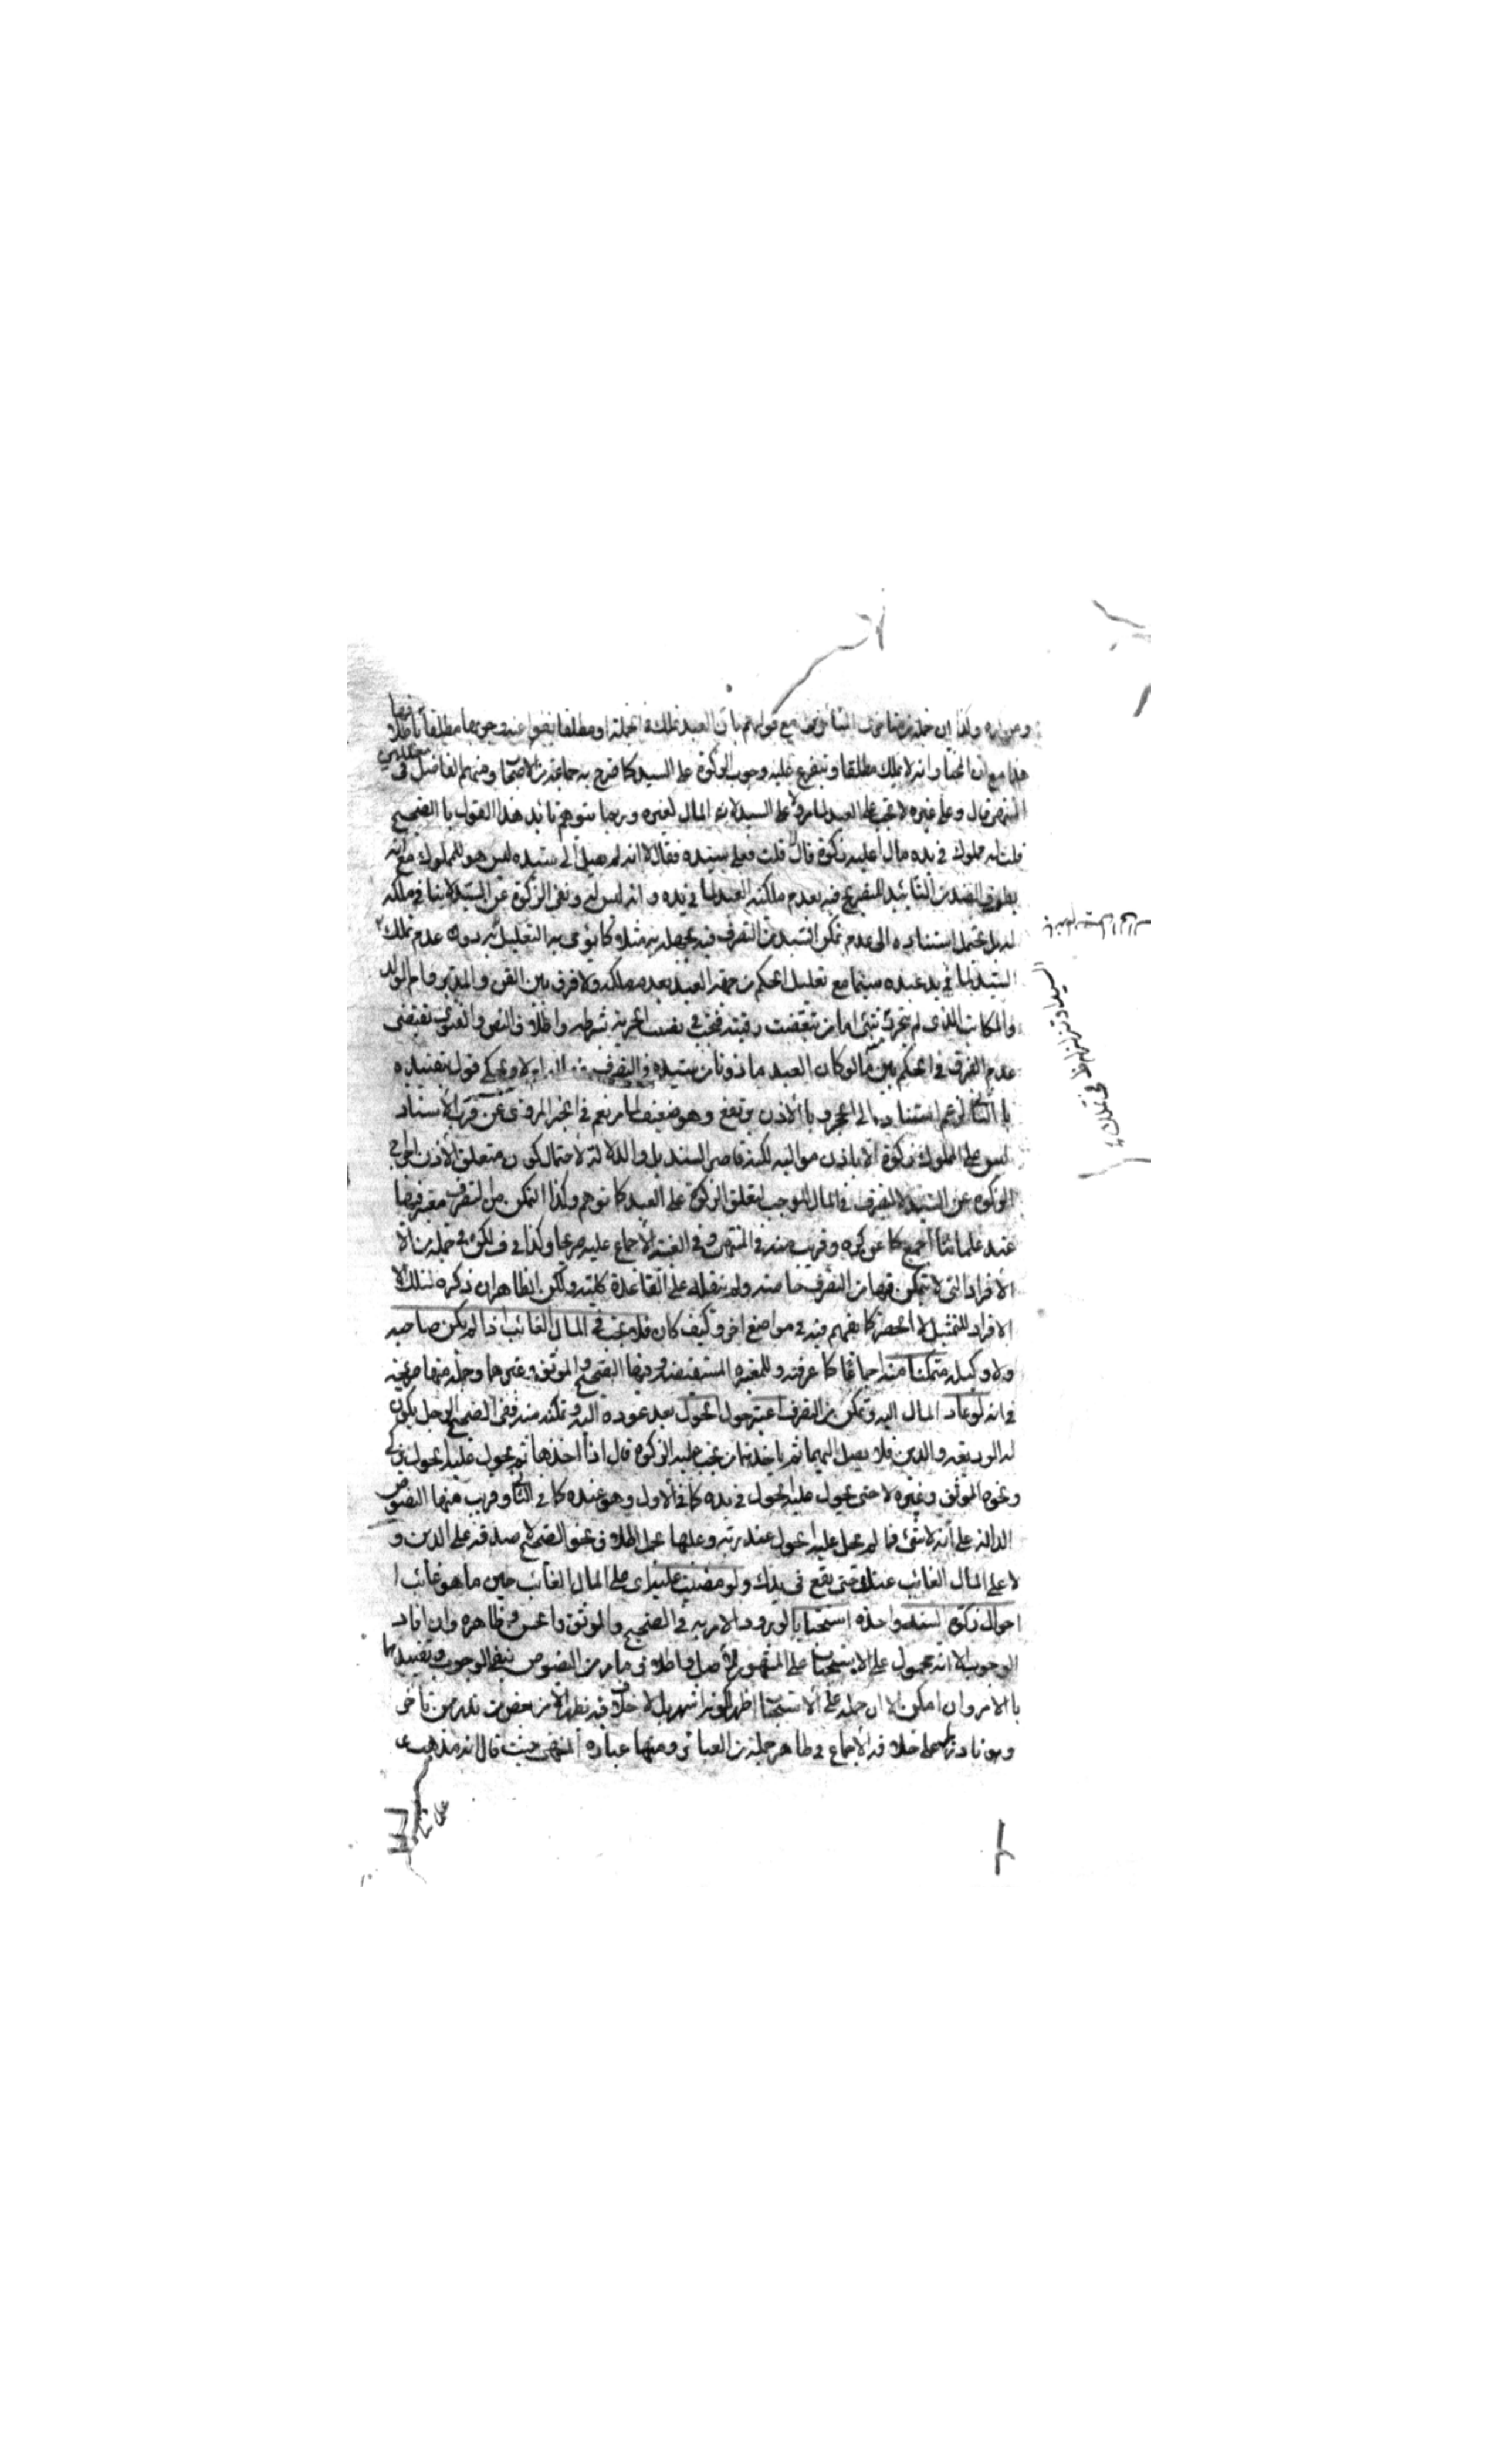 ولذا ان جملة من متأخري المتأخرين مع قولهم بأن العبد يملك في الجملة او مطلقا نفوا عنه وجوبها مطلقا
هذا مع ان المختار انه لا يملك مطلقا ويتفرع عليه وجوب الزكوة على السيد كما صرح به جماعة من الاصحاب ومنهم الفاضل في
المنتهى قال وعلى غيره لا تجب على العبد لما مر ولا على السيد لان المال لغيره وربما يتوهم تأيد هذا القول بالصحيح
قلت له مملوك في يده مال أعليه زكوة قال لا قلت فعلى سيده فقال لا انه لم يصل الى سيده وليس هو للمملوك مع انه
بطرف الضد من التأييد للتصريح فيه بعدم مالكية العبد لما في يده وانه ليس له ونفي الزكوة عن السيد لا ينافي ملكه
له بل يحتمل استناده الى عدم تمكن السيد من التصرف فيه بجهله به مثلا كما يومي به التعليل به دون عدم تملك
السيد لما في يد عبده سيما مع تعليل الحكم من جهة العبد بعدم ملكه ولا فرق بين القن والمدبر وام الولد
والمكاتب الذي لم يتحرر منه شيء اما من تبعضت رقيته فتجب في نصيب الحرية بشرطه واطلاق النص والفتوى يقتضي
عدم الفرق في الحكم بين ما لو كان العبد ماذونا من سيده في التصرف ام لا ويحكى قول بتقييده
بالثاني لزعم استناده الى الحجر وبالاذن يرتفع وهو ضعيف لما مر نعم في الخبر المروي عن قرب الاسناد
ليس على المملوك زكوة الا باذن مواليه لكنه قاصر السند بل والدلالة لاحتمال كون متعلق الاذن اخراج
الزكوة عن السيد لا التصرف في المال الموجب لتعلق الزكوة على العبد كما توهم وكذا التمكن من التصرف معتبر فيها
عند علمائنا اجمع كما عن كره وقريب منه في المنتهى وفي الغنية الاجماع عليه صريحا وكذا في ف لكن في جملة من
الافراد التي لا يتمكن فيها من التصرف خاصة ولم ينقله على القاعدة كلية ولكن الظاهر ان ذكره لتلك
الافراد للتمثيل لا الحصر كما يفهم منه في مواضع اخر وكيف كان فلا تجب في المال الغائب اذا لم يكن صاحبه
ولا وكيله متمكنا منه اجماعا كما عرفته وللمعتبرة المستفيضة وفيها الصحيح والموثق وغيرهما وجملة منها صريحة
في انه لو عاد المال اليه وتمكن من التصرف اعتبر حول الحول بعد عوده اليه وتمكنه منه ففي الصحيح الرجل يكون
له الوديعة والدين فلا يصل اليهما ثم يأخذهما متى تجب عليه الزكوة قال اذا اخذها ثم يحول عليه الحول يزكي
ونحوه الموثق وغيره لا حتى يحول عليه الحول في يده كما في الاول وهو عنده كما في الثاني وقريب منها النصوص
الدالة على انه لا شيء فيما لم يحل عليه الحول عند ربه وعليها يحمل اطلاق نحو الصحيح لا صدقة على الدين و
لا على المال الغائب عنك حتى يقع في يدك ولو مضت عليه اي على المال الغائب حين ما هو غائب
احوال زكوه لسنة واحدة استحبابا لورود الامر به في الصحيح والموثق والحسن وظاهره وان افاد
الوجوب الا انه محمول على الاستحباب على المشهور للاصل واطلاق ما مر من النصوص بنفي الوجوب وتقييدها
بالامر وان امكن الا ان حمله على الاستحباب اظهر لكونه اشهر بل لا خلاف فيه يظهر الا من بعض من ندر ممن تأخر
وهو نادر بل على خلافه الاجماع في ظاهر جملة من العبائر ومنها عبارة المنتهى حيث قال انه مذهب